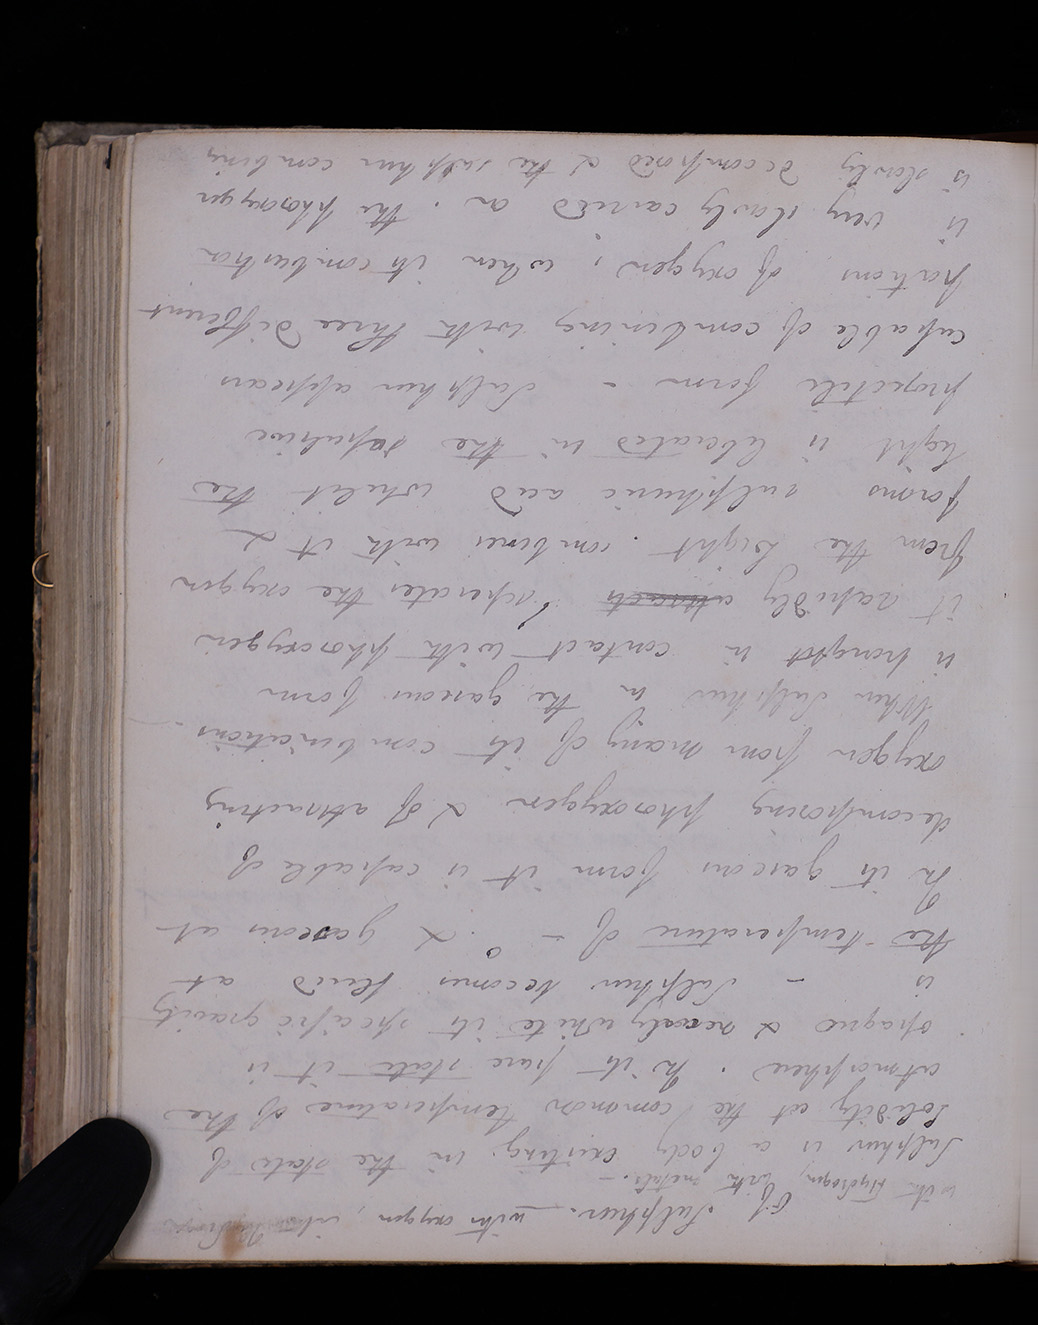 Of Sulphur. — with oxygen,
with Hydrogen, with metals. —
Sulphur is a body existing in the state of
Solidity at the common temperature of the
atmosphere. In its pure state it is
opaque & nearly white its specific gravity
is — Sulphur becomes fluid at
the temperature of — ° & gaseous at
In its gaseous form it is capable of
decomposing phosoxygen & of attracting
oxygen from many of its combinations.
When Sulphur in the gaseous form
is brought in contact with phosoxygen
it rapidly attracts seperates the oxygen
from the Light. combines with it &
forms sulphuric acid whilst the
light is liberated in the repulsive
projectile form — Sulphur appears
capable of combining with three different
portions of oxygen; when its combustion
is very slowly carried on. the phosoxygen
is slowly decomposed & the sulphur combing